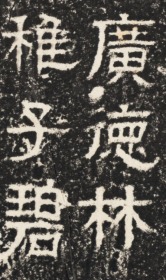 廣德林
稚子碧